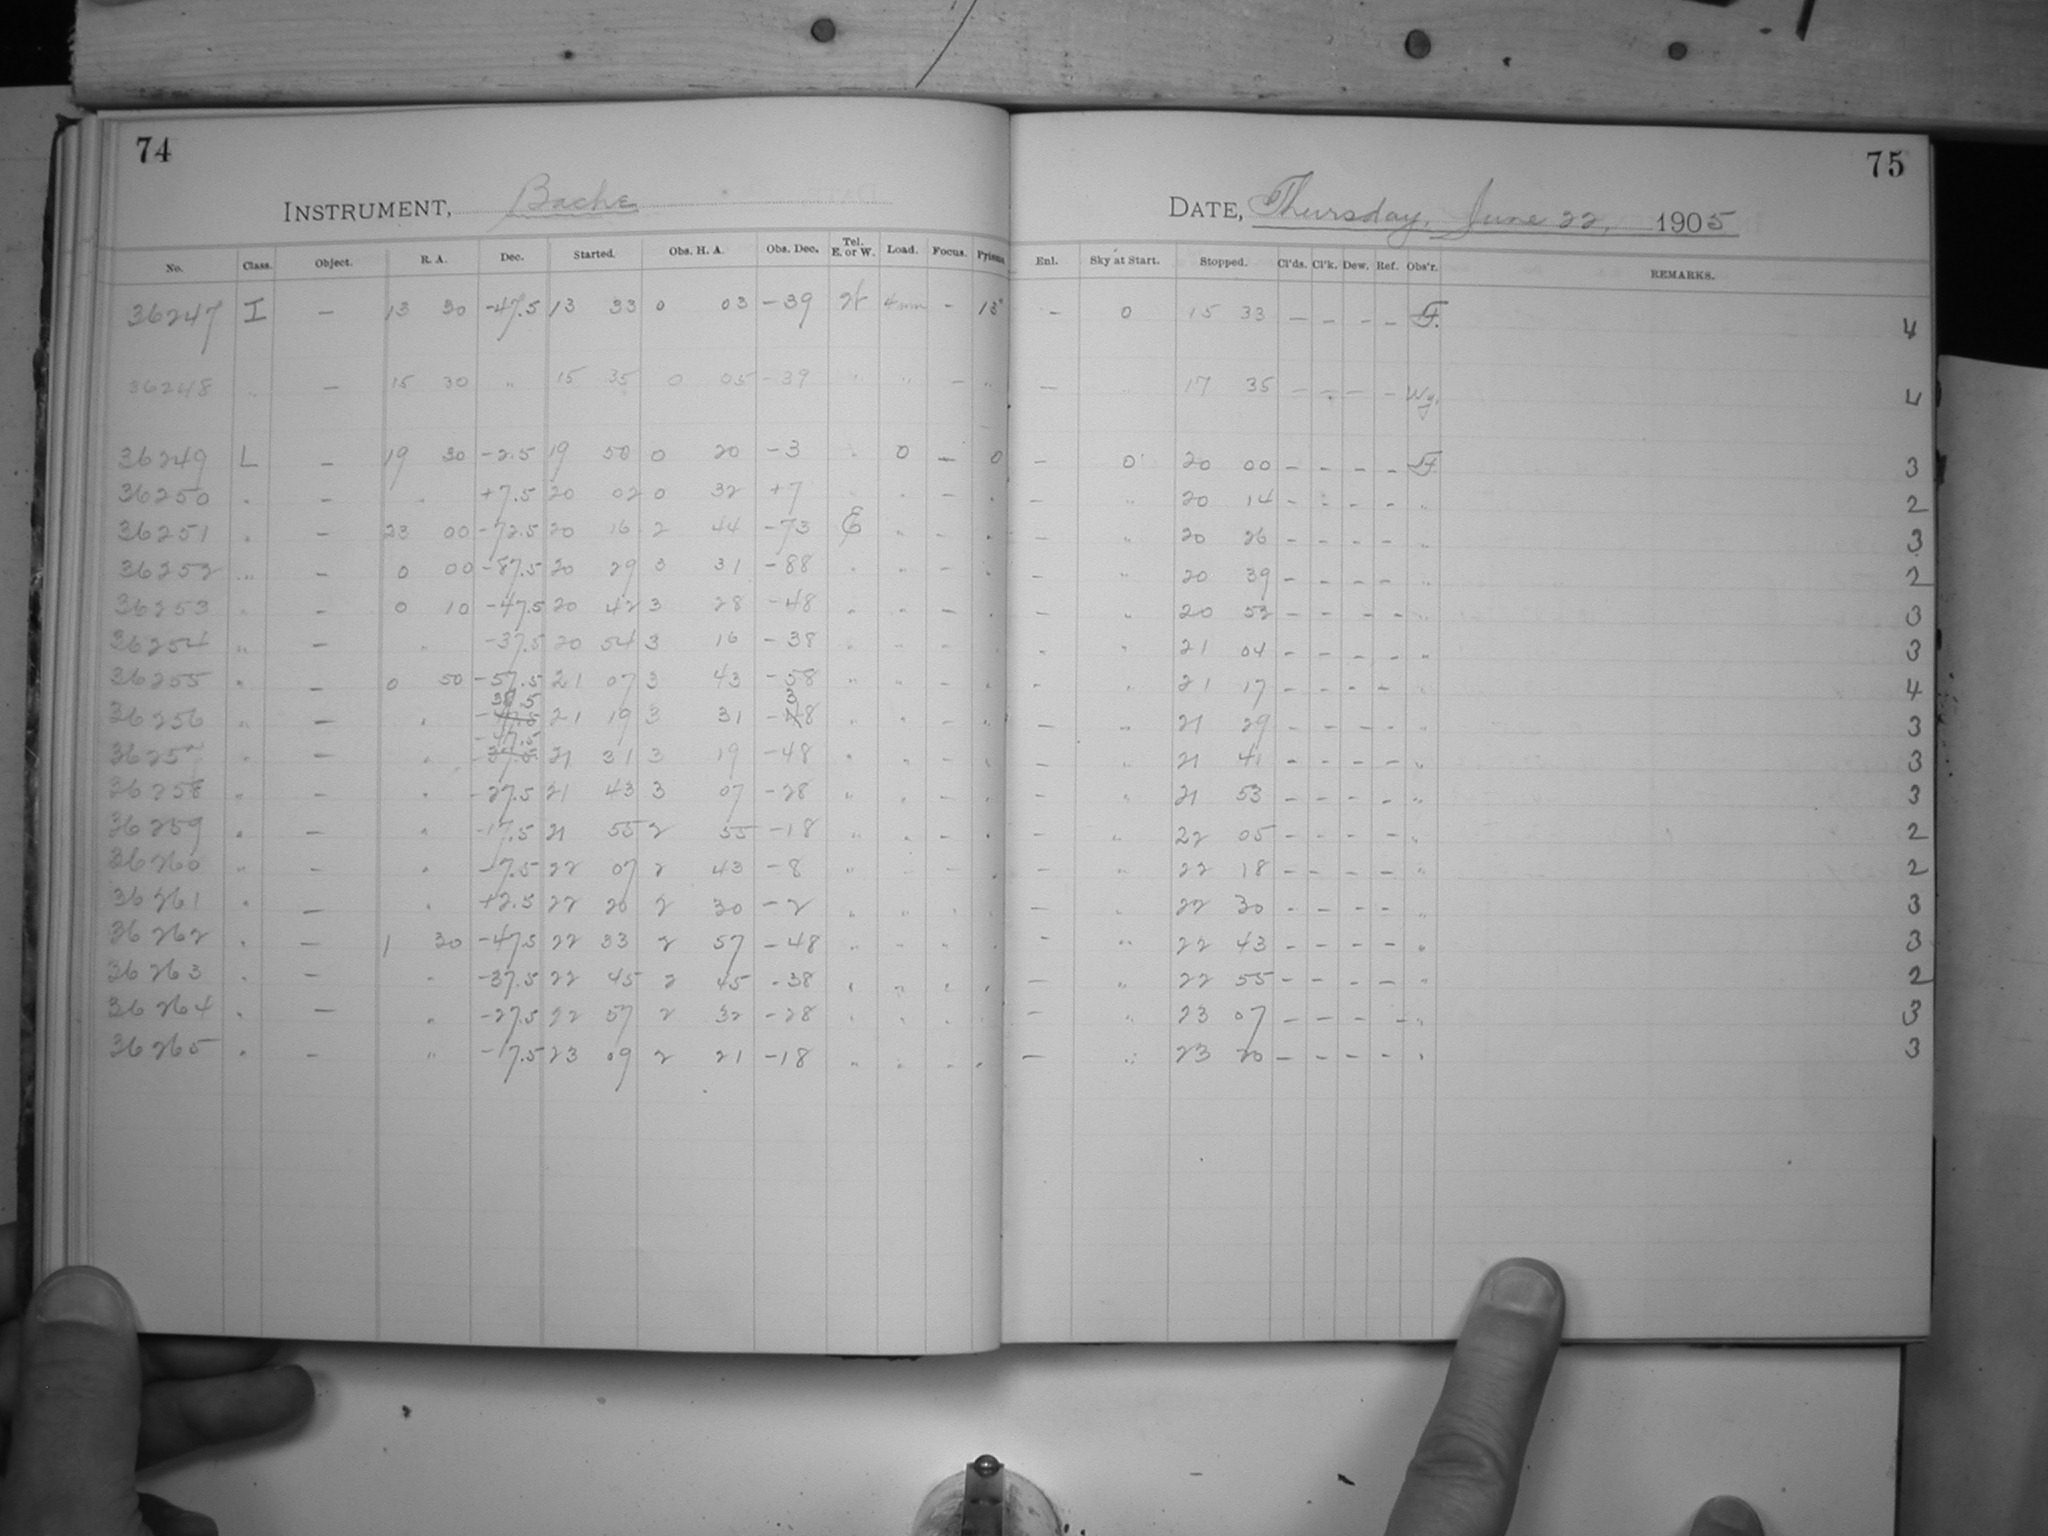 74
INSTRUMENT, Bache
No. Class. Object. R. A. Dec. Started. Obs. H. A. Obs. Dec. Tel. E. or W. Load. Focus. Prisms
36247 I — 13 30 -47.5 13 33 0 03 -39 W 4mm - 13"
36248 " — 15 30 " 15 35 0 05 -39 " " - "
36249 L — 19 30 -2.5 19 50 0 20 -3 " 0 — 0
36250 " — " +7.5 20 02 0 32 +7 " " — "
36251 " — 23 00 -72.5 20 16 2 44 -73 E " — "
36252 " — 0 00 -87.5 20 29 3 31 -88 " " — "
36253 " — 0 10 -47.5 20 42 3 28 -48 " " — "
36254 " — " -37.5 20 54 3 16 -38 " " — "
36255 " — 0 50 -57.5 21 07 3 43 -58 " " — "
36256 " — " -37.5 21 19 3 31 -38 " " — "
36257 " — " -47.5 21 31 3 19 -48 " " — "
36258 " — " -27.5 21 43 3 07 -28 " " — "
36259 " — " -17.5 21 55 2 55 -18 " " — "
36260 " — " -7.5 22 07 2 43 -8 " " — "
36261 " — " +2.5 22 20 2 30 -2 " " " "
36262 " — 1 30 -47.5 22 33 2 57 -48 " " " "
36263 " — " -37.5 22 45 2 45 -38 " " " "
36264 " — " -27.5 22 57 2 32 -28 " " " "
36265 " — " -17.5 23 09 2 21 -18 " " " "
75
DATE, Thursday, June 22, 1905
Enl. Sky at Start. Stopped. Cl'ds. Cl'k. Dew. Ref. Obs'r. REMARKS.
— 0 15 33 — — — — F. 4
— " 17 35 — — — — Wy. 4
— 0 20 00 — — — — F. 3
— " 20 14 — — — — " 2
— " 20 26 — — — — " 3
— " 20 39 — — — — " 2
— " 20 52 — — — — " 3
" " 21 04 — — — — " 3
" " 21 17 — — — — " 4
— " 21 29 — — — — " 3
— " 21 41 — — — — " 3
— " 21 53 — — — — " 3
— " 22 05 — — — — " 2
— " 22 18 — — — — " 2
— " 22 30 — — — — " 3
— " 22 43 — — — — " 3
— " 22 55 — — — — " 2
— " 23 07 — — — — " 3
— " 23 20 — — — — " 3